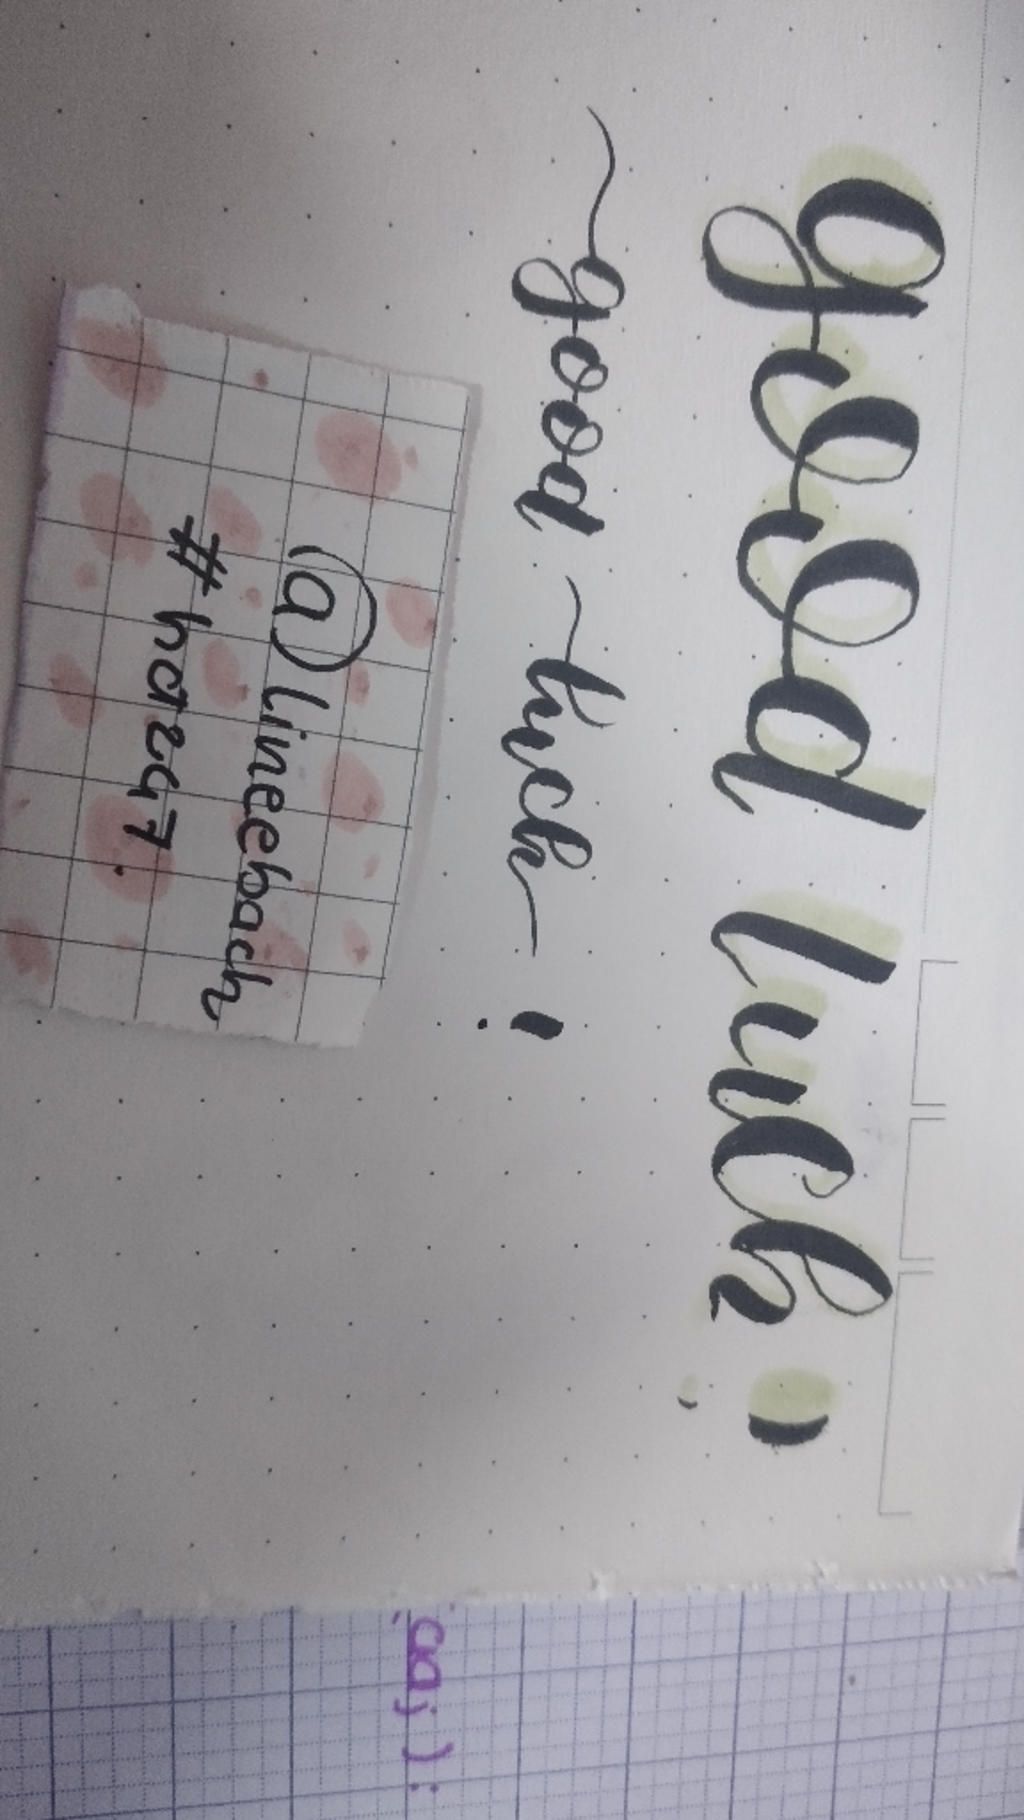 good luck !
good luck !
@lineebach
#hazq7.